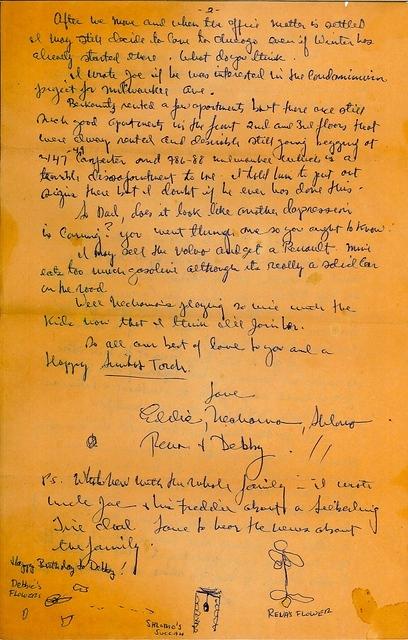 - 2 -
After we move and when the office matter is settled
I may still decide to come to Chicago even if Winter has
already started there. What do you think.
I wrote Joe if he was interested in the Condominium
project for Milwaukee Ave.
Berkowitz rented a few apartments but there are still
such good apartments in the front 2nd and 3rd floors that
were always rented and desirable still going begging at
Carpenter and 986-88 Milwaukee which is a
terrible disappointment to me. I told him to put out
signs there but I doubt if he ever has done this.
So Dad, does it look like another depression
is coming? You went through one so you ought to know.
I may sell the Volvo and get a Renault. Mine
eats too much gasoline although it's really a solid car
on the road.
Well Nechama's playing so nice with the
Kids now that I think I'll join her.
So all our best of love to you and a
Happy Simhat Torah.
Love
Eddie, Nechama, Shlomo
Rena & Debby. //
P.S. What's new with the whole family - I wrote
Uncle Joe & his Freddie about a
Tire deal. Love to hear the news about
the family.
Happy Birthday to Debby!
DEBBIE'S
FLOWERS
SHLOMO'S
SUCCAH
RENA'S FLOWER